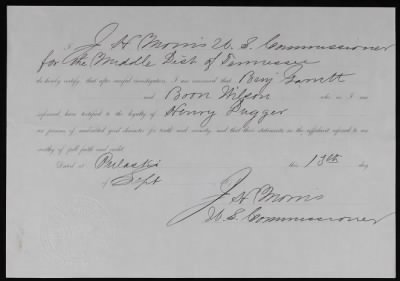 I J H Morris U. S. Commissioner
for the Middle Dist of Tennessee
do hereby certify, that after careful investigation, I am convinced that Benj Garrett
and Boon Wilson who as I am
informed, have testified to the loyalty of Henry Dugger
are persons of undoubted good character for truth and veracity, and that their statements in the affidavit referred to are
worthy of full faith and credit.
Dated at Pulaski this 13th day
of Sept
J H Morris
U. S. Commissioner